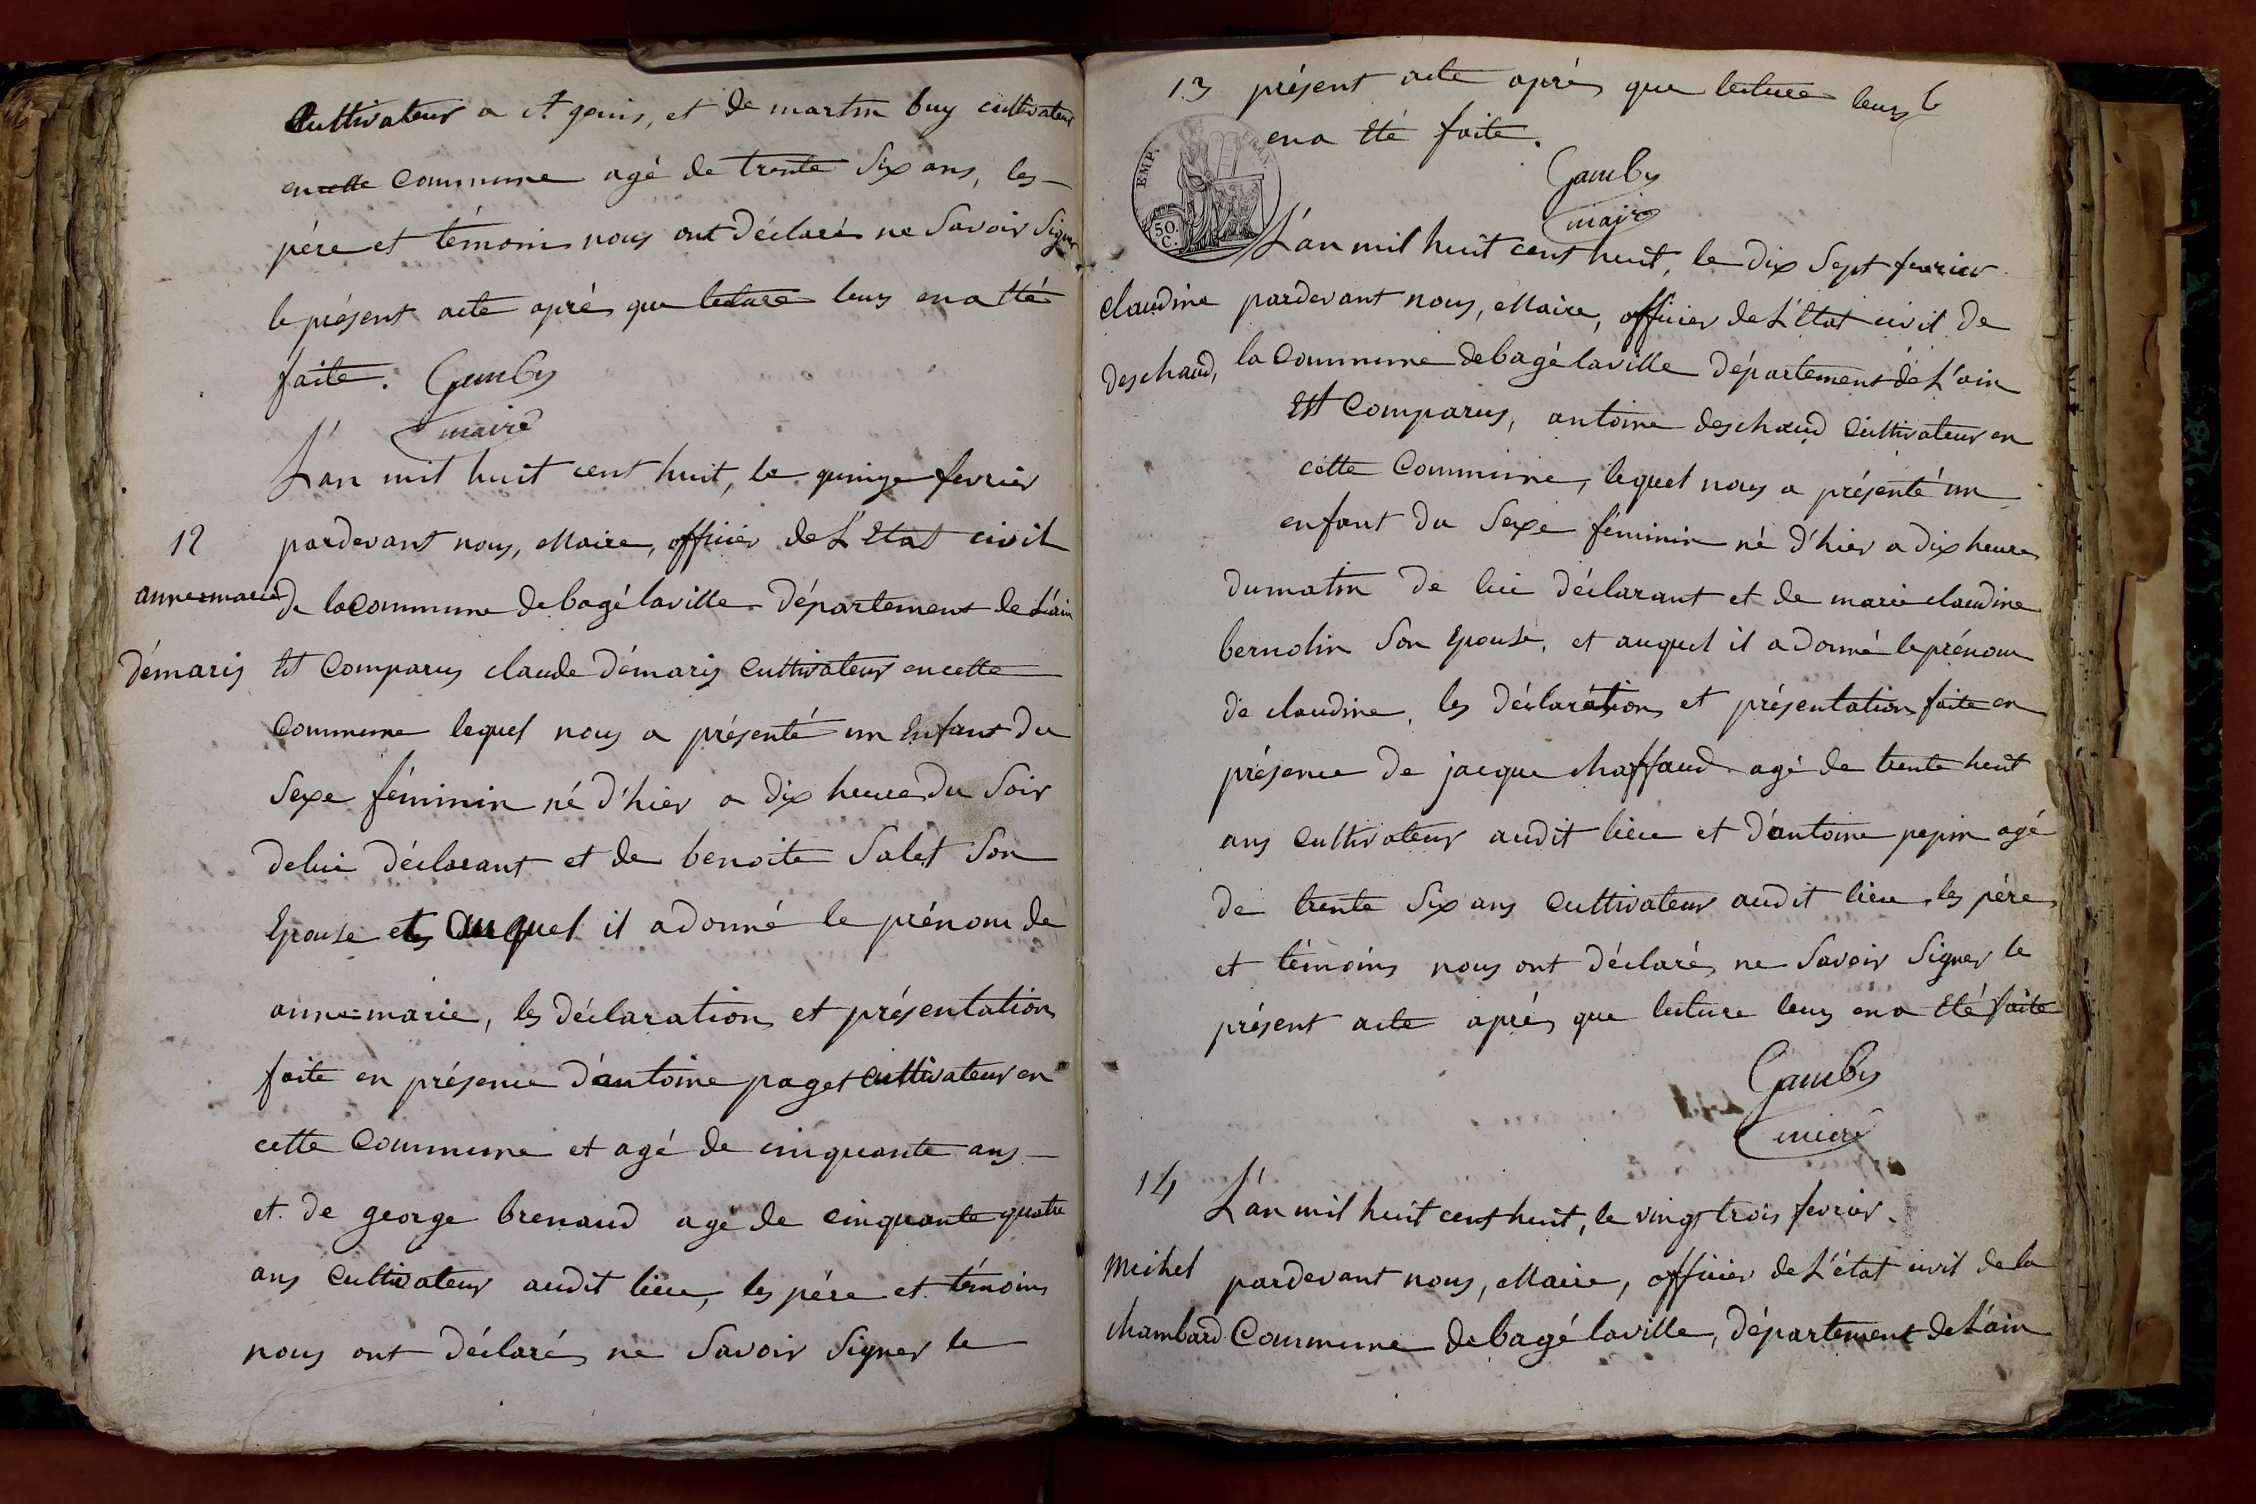 Cultivateur a St genis, et de martin buy cultivateur
en cette Commune agé de trente Six ans, les
pére et témoins nous ont déclarés ne Savoir Signer
le présent acte aprés que lecture leurs en a été
faite. Gamby
maire
L'an mil huit cent huit, le quinze fevrier
12
pardevant nous, Maire, officier de L'Etat civil
anne=marie
de la Commune de bagé laville Département de L'ain
démaris
Est Comparus claude démaris Cultivateur en cette
Commune lequel nous a présenté un Enfant du
Sexe féminin né d'hier a dix heure du Soir
de lui déclarant et de benoite Salet Son
Epouse et auquel il a donné le prénom de
anne=marie, les déclarations et présentations
faite en présence d'antoine paget Cultivateur en
cette Commune et agé de cinquante ans
et de george brenaud agé de cinquante quatre
ans Cultivateur audit lieu, les pére et témoins
nous ont déclarés ne Savoir Signer le
13
présent acte aprés que lecture leurs
en a été faite.
Gamby
maire
EMP.
50
C.
L'an mil huit cent huit, le dix Sept fevrier
claudine
pardevant nous, Maire, officier de L'Etat civil de
deschaud,
la Commune de bagé laville Département de L'ain
Est Comparus, antoine deschaud Cultivateur en
cette Commune, lequel nous a présenté un
enfant du Sexe féminin né d'hier a dix heures
du matin de lui déclarant et de marie claudine
bernolin Son Epouse, et auquel il a donné le prénom
de claudine, les déclarations et présentations faite en
présence de jacque chaffaud agé de trente huit
ans Cultivateur audit lieu et d'antoine pepin agé
de trente Six ans Cultivateur audit lieu, les pére
et témoins nous ont déclarés ne Savoir Signer le
présent acte aprés que lecture leurs en a Eté faite
Gamby
maire
14
L'an mil huit cent huit, le vingt trois fevrier
Michel
pardevant nous, Maire, officier de L'état civil de la
chambard
Commune de bagé laville, département de L'ain